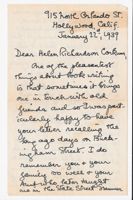 915 North Orlando St.
Hollywood, Calif.
January 22, 1939
Dear Helen Richardson Corkum,
One of the pleasantest
things about book writing
is that sometimes it brings
one in touch with old
friends and so I was part-
icularly happy to have
your letter recalling the
long ago days on
Street. I do
remember you &
your
boy who later taught
me in the State Street Summer